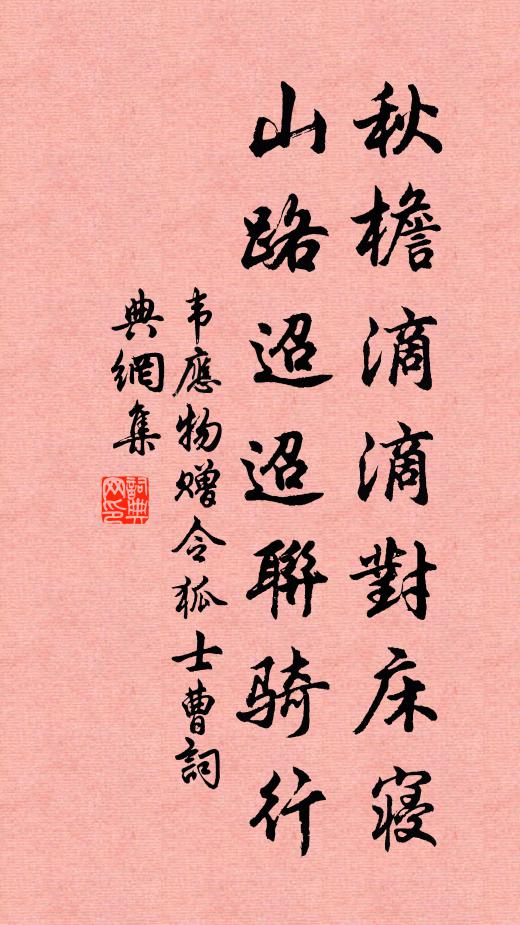 秋檐滴滴對床寢
山路迢迢聯骑行
韦應物赠令狐士曹詞
典網集
詞典
网印